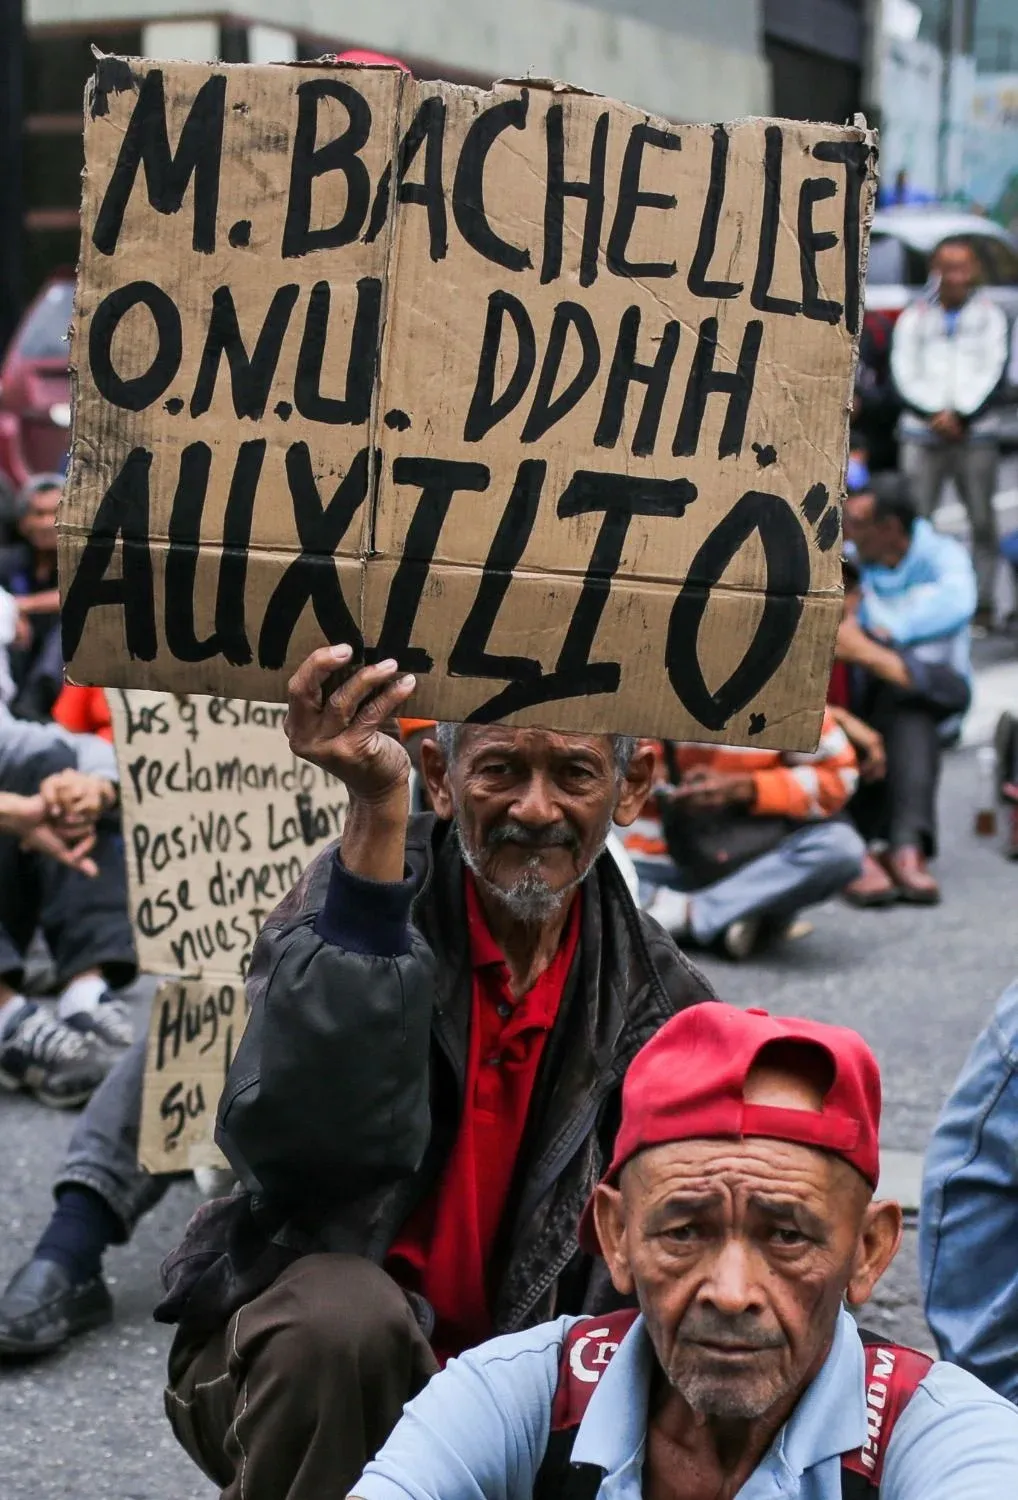 M. BACHELLET
O.N.U. DDHH.
AUXILIO".
Los q estan
reclamando
Pasivos Labor
ese dinero
nuest
Hugo
Su